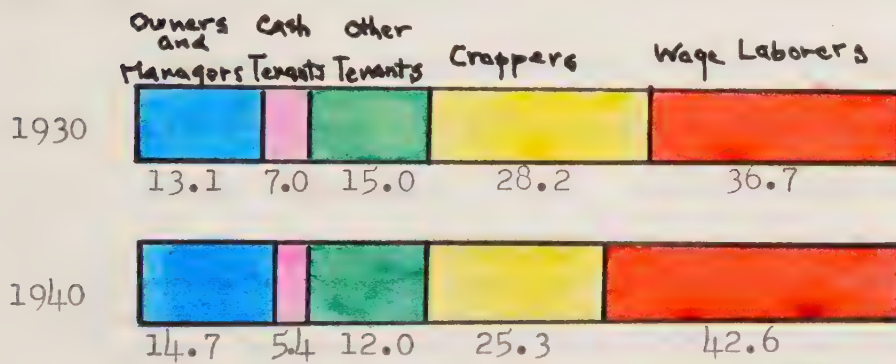 Owners Cash Other
and
Managers Tenants Tenants Croppers Wage Laborers
1930
13.1 7.0 15.0 28.2 36.7
1940
14.7 5.4 12.0 25.3 42.6